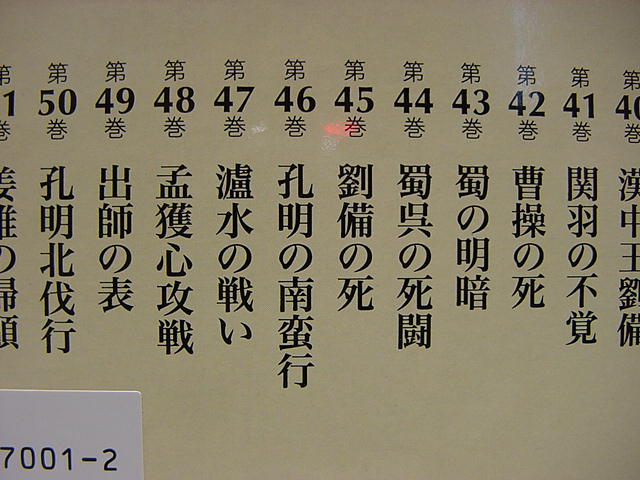 第40巻 漢中王劉備
第41巻 関羽の不覚
第42巻 曹操の死
第43巻 蜀の明暗
第44巻 蜀呉の死闘
第45巻 劉備の死
第46巻 孔明の南蛮行
第47巻 瀘水の戦い
第48巻 孟獲心攻戦
第49巻 出師の表
第50巻 孔明北伐行
第1巻 姜維の帰順
7001-2